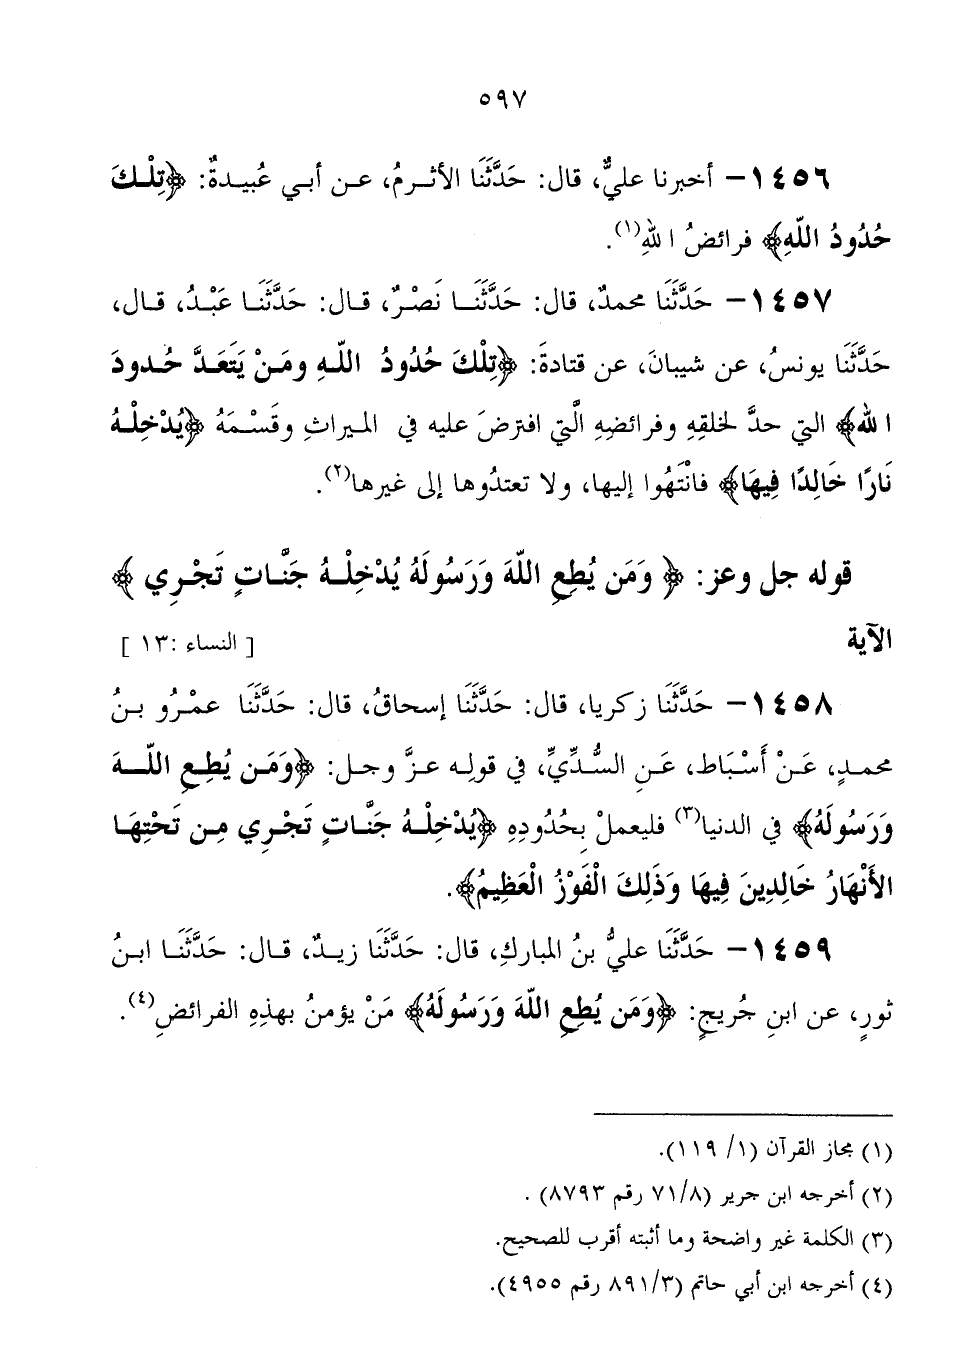 ٥٩٧
١٤٥٦- أخبرنا عليٌّ، قال: حَدَّثَنَا الأثـرمُ، عـن أبـي عُبيـدةٌ: ﴿تِلْـكَ
حُدُودُ اللَّهِ﴾ فرائضُ اللهِ(١).
١٤٥٧- حَدَّثَنَا محمدٌ، قال: حَدَّثَنَــا نَصْـرٌ، قـال: حَدَّثَنَـا عَبْـدُ، قـال،
حَدَّثَنَا يونسُ، عن شيبانَ، عن قتادةَ: ﴿تِلْكَ حُدُودُ اللَّـهِ ومَـنْ يَتَعَـدَّ حُـدودَ
الله﴾ التي حدَّ لخلقِهِ وفرائضِهِ الَّتي افترضَ عليه في الميراثِ وقَسْـمَهُ ﴿يُدْخِلْـهُ
نَارًا خَالِدًا فِيهَا﴾ فانْتَهُوا إليها، ولا تعتدُوها إلى غيرها(٢).
قوله جل وعز: ﴿ وَمَن يُطِعِ اللَّهَ وَرَسُولَهُ يُدْخِلْـهُ جَنَّـاتٍ تَجْـرِي ﴾
الآية [ النساء :١٣ ]
١٤٥٨- حَدَّثَنَا زكريا، قال: حَدَّثَنَا إسحاقُ، قال: حَدَّثَنَا عمْـرُو بـنُ
محمدٍ، عَـنْ أَسْـبَاط، عَـنِ السُّـدِّيِّ، في قولِـه عـزَّ وجـل: ﴿وَمَـن يُطِـعِ اللَّــهَ
وَرَسُولَهُ﴾ في الدنيا(٣) فليعملْ بِحُدُودِهِ ﴿يُدْخِلْـهُ جَنَّـاتٍ تَجْـرِي مِـن تَحْتِهَـا
الأَنْهَارُ خَالِدِينَ فِيهَا وَذَلِكَ الْفَوْزُ الْعَظِيمُ﴾.
١٤٥٩- حَدَّثَنَا عليُّ بنُ المباركِ، قال: حَدَّثَنَا زيـدٌ، قـال: حَدَّثَنَـا ابـنُ
ثورٍ، عن ابنِ جُريجٍ: ﴿وَمَن يُطِعِ اللَّهَ وَرَسُولَهُ﴾ مَنْ يؤمنُ بهذِهِ الفرائضِ(٤).
(١) مجاز القرآن (١/ ١١٩).
(٢) أخرجه ابن جرير (٧١/٨ رقم ٨٧٩٣) .
(٣) الكلمة غير واضحة وما أثبته أقرب للصحيح.
(٤) أخرجه ابن أبي حاتم (٨٩١/٣ رقم ٤٩٥٥).